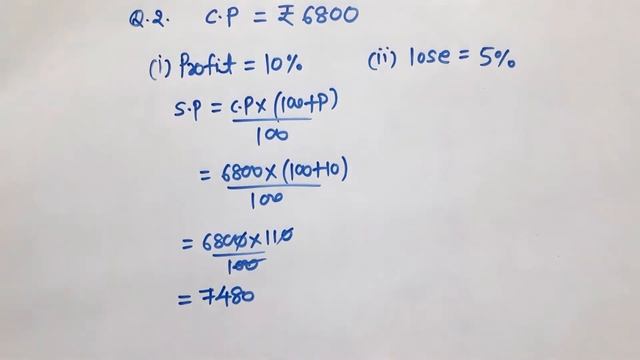 Q.2. C.P = ₹ 6800
(i) Profit = 10%
(ii) lose = 5%
S.P = C.P × (100+P)
100
= 6800 × (100+10)
100
= 6800 × 110
100
= 7480